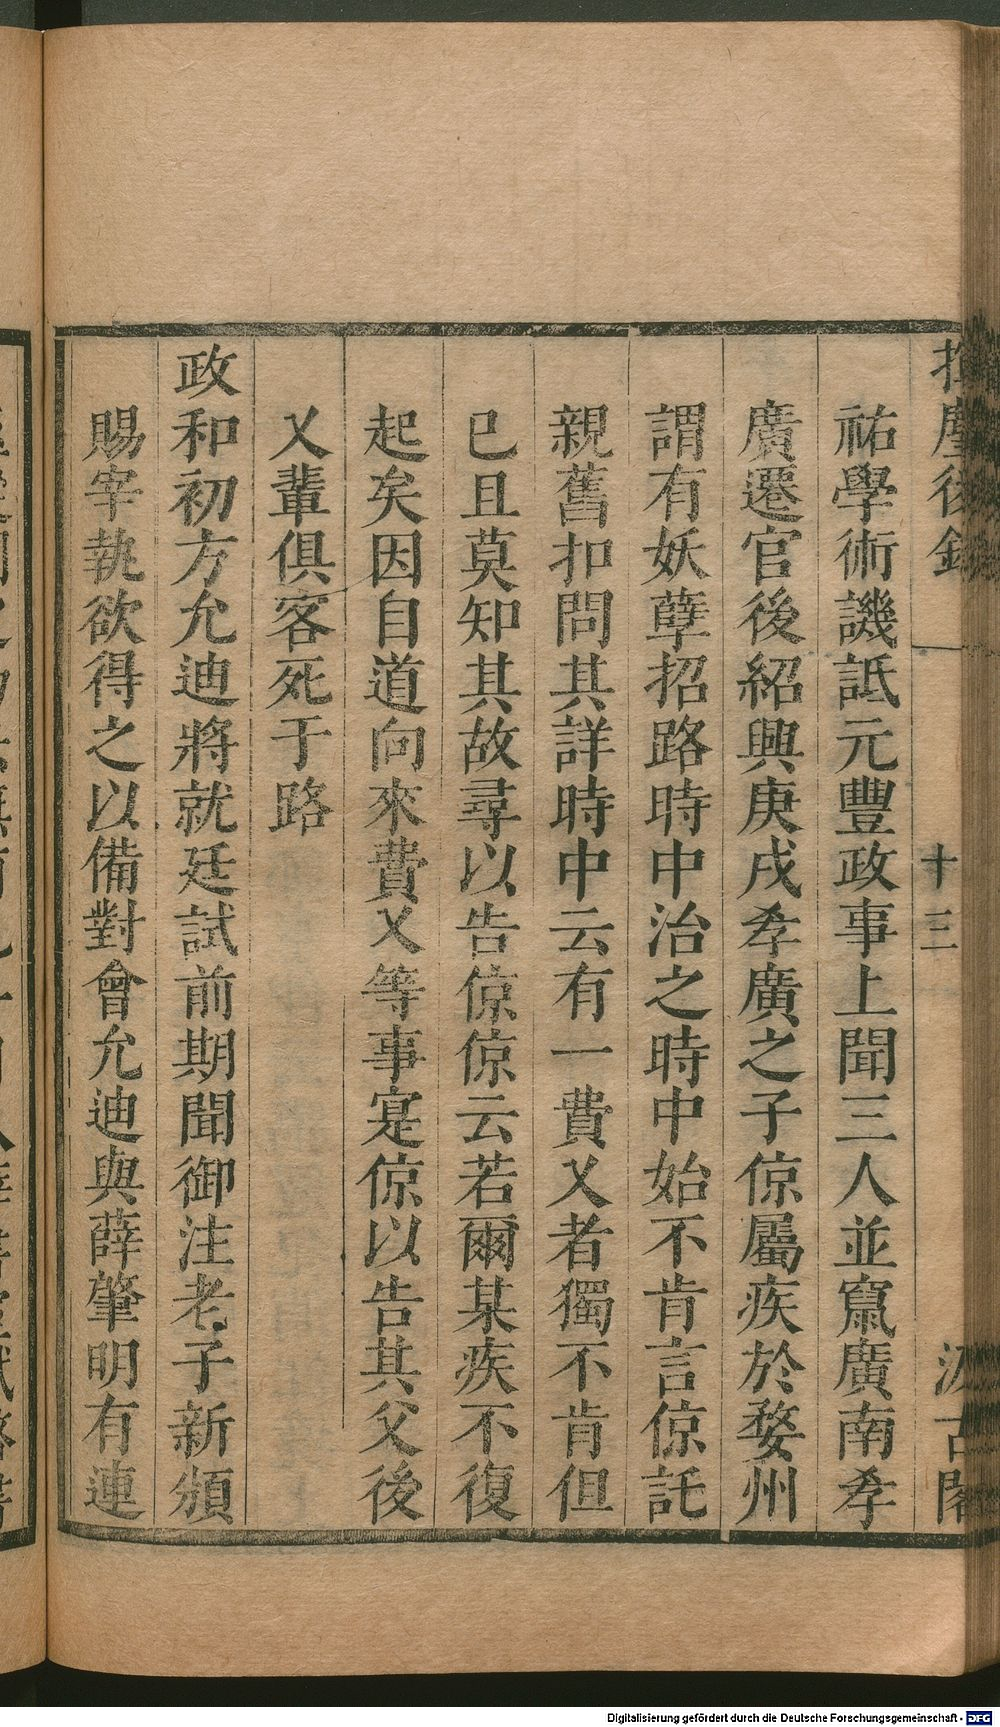 揮塵後錄
十三
汲古閣
祐學術譏詆元豐政事上聞三人並竄廣南孝
廣遷官後紹興庚戌孝廣之子倞屬疾於婺州
謂有妖孽招路時中治之時中始不肯言倞託
親舊扣問其詳時中云有一費乂者獨不肯但
已且莫知其故尋以告倞倞云若爾某疾不復
起矣因自道向來費乂等事寔倞以告其父後
乂輩俱客死于路
政和初方允迪將就廷試前期聞御注老子新頒
賜宰執欲得之以備對會允迪與薛肇明有連
Digitalisierung gefördert durch die Deutsche Forschungsgemeinschaft - DFG